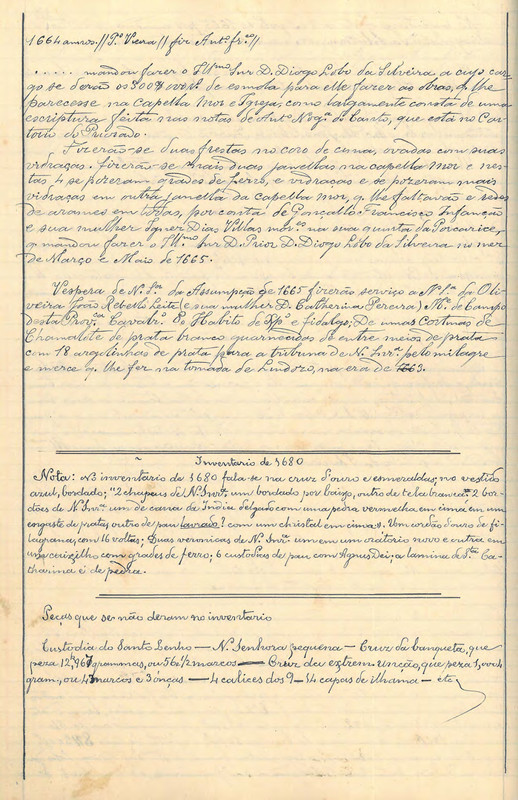 1664 annos. // Pº Vieira // fir Antº frz //
..... mandou fazer o Illmo Snr D. Diogo Lobo da Silveira, a cujo car-
go se derão os 300$ reis de esmola para elle fazer as obras, q. lhe
parecesse na capella Mor e Igreja, como largamente consta de uma
escriptura feita nas notas de Antº Nogrª do Canto, que está no Car-
torio do Priorado.
Fizerão-se duas frestas no coro de cima, ovadas com suas
vidraças. fizerão-se mais duas janellas na capella Mor e nes-
tas 4 se pozeram grades de ferro, e vidraças e se pozeram mais
vidraças em outra janella da capella mor, q. lhe faltavão e redes
de arames em todas, por conta de Gonçallo Francisco Infanção
e sua mulher Ignez Dias Villas morªs na sua quinta da Porcarice,
q. mandou fazer o Illmo Snr D. Prior D. Diogo Lobo da Silveira no mez
de Março e Maio de 1665.
Vespera de Nª Srª da Assumpção de 1665 fizerão serviço a Nª Srª da Oli-
veira João Rebello Leite (e sua mulher D. Catharina Pereira) Mª de Campo
desta Provcª Cavalrº do Habito de Xpº e fidalgo, De umas cortinas de
Chamalote de prata branco guarnecidas de entre meios de prata
com 18 argolinhas de prata para a tribuna de Nª Snrª pelo milagre
e merce q. lhe fez na tomada de Lindozo, na era de 1663.
Inventario de 1680
Nota: No inventario de 1680 fala-se na cruz d'ouro e esmeraldas; no vestido
azul, bordado; "2 chapeus de N. Snrª, um bordado por baixo, outro de tela branca"; 2 bor-
dões de N. Snrª um de cana da India delgado com uma pedra vermelha em cima em um
engaste de prata; outro de pau lavrado? com um christal em cima". Um cordão d'ouro de fi-
lagrana, com 16 voltas; Duas veronicas de N. Snrª um em um oratorio novo e outra em
um caixilho com grades de ferro; 6 custodias de pau, com Agnus Dei; a lamina de Stª Ca-
tharina é de pedra.
Peças que se não deram no inventario
Custodia do Santo Lenho — N. Senhora pequena — Cruz da banqueta, que
peza 12k,967 grammas, ou 56 1/2 marcos — Cruz da extrem. unção, que peza 1,004
gram., ou 4 marcos e 3 onças — 4 calices dos 9 — 14 capas de lhama — etc